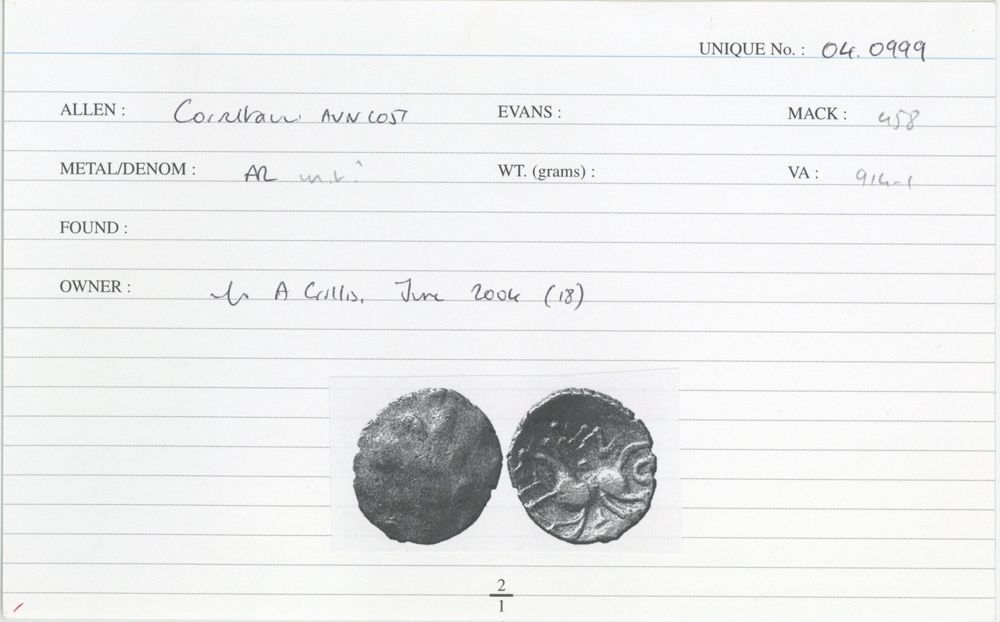 UNIQUE No. : 04. 0999
ALLEN : AVN COST EVANS : MACK : 458
METAL/DENOM : AR WT. (grams) : VA : 914-1
FOUND :
OWNER : A Gillis, June 2004 (18)
2
1